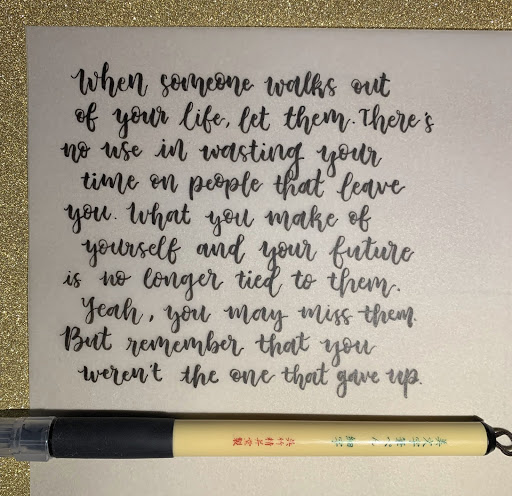 When someone walks out
of your life, let them. There's
no use in wasting your
time on people that leave
you. What you make of
yourself and your future
is no longer tied to them.
Yeah, you may miss them.
But remember that you
weren't the one that gave up.
呉竹精昇堂製